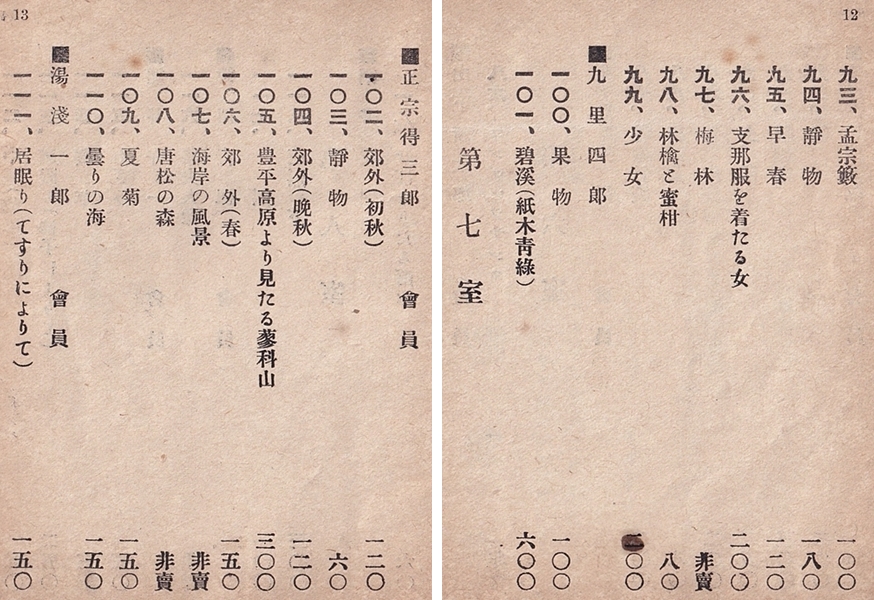 12
九三、孟宗籔 一〇〇
九四、靜物 一八〇
九五、早春 一二〇
九六、支那服を着たる女 二〇〇
九七、梅林 非賣
九八、林檎と蜜柑 八〇
九九、少女 〇〇
■九里四郎
一〇〇、果物 一〇〇
一〇一、碧溪(紙木靑綠) 六〇〇
第七室
13
■正宗得三郎 會員
一〇二、郊外(初秋) 一二〇
一〇三、靜物 六〇
一〇四、郊外(晩秋) 一二〇
一〇五、豊平高原より見たる蓼科山 三〇〇
一〇六、郊外(春) 一五〇
一〇七、海岸の風景 非賣
一〇八、唐松の森 非賣
一〇九、夏菊 一五〇
一一〇、曇りの海 一五〇
■湯淺一郎 會員
一一一、居眠り(てすりによりて) 一五〇